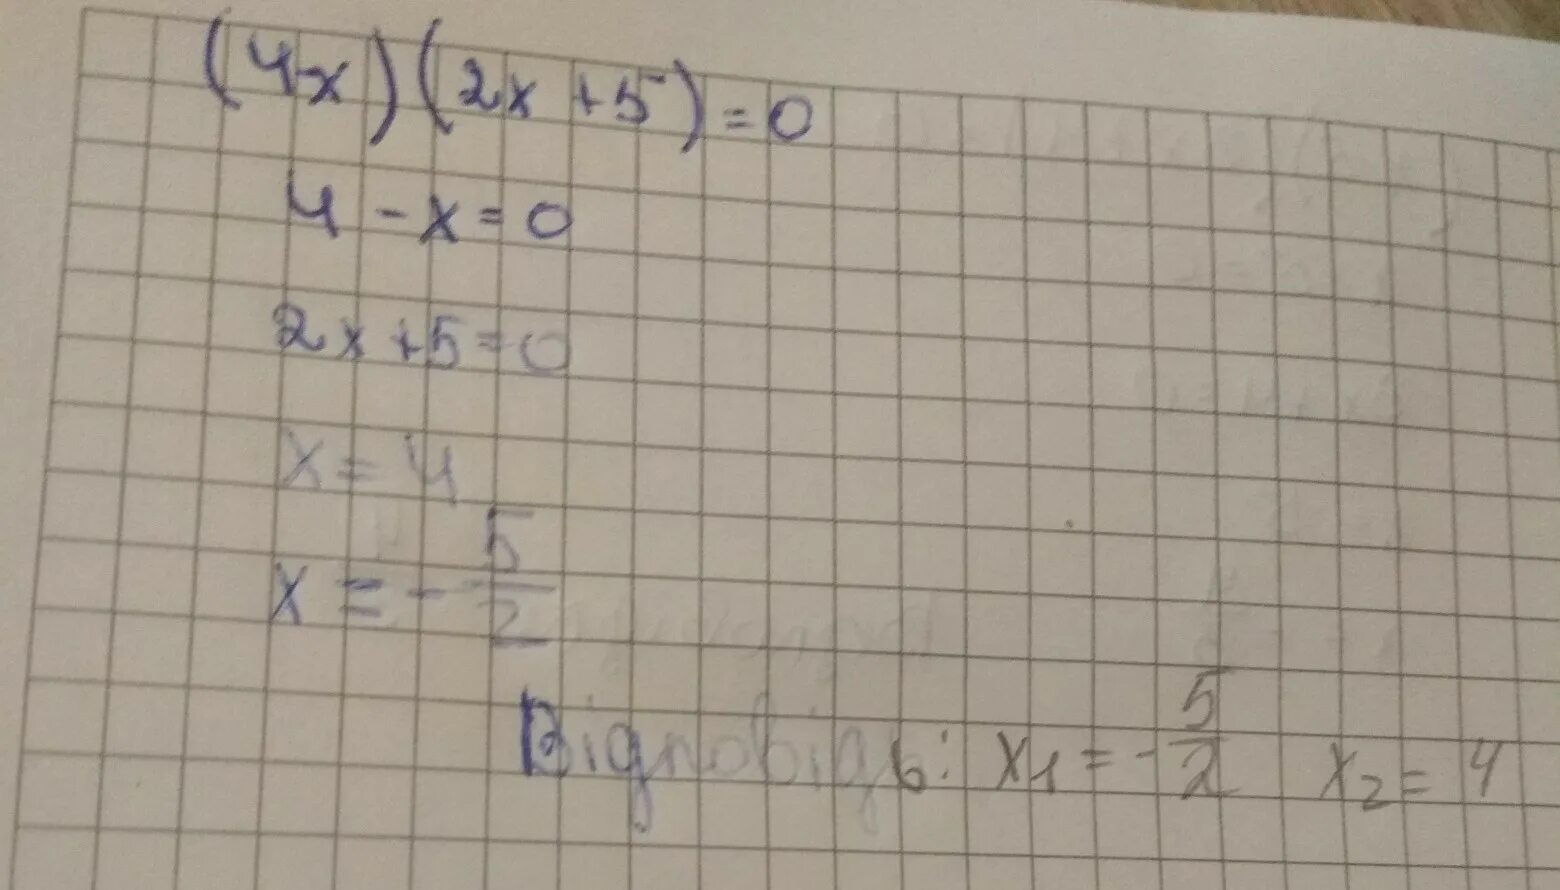 (4-x)(2x+5)=0
4-x=0
2x+5=0
x=4
x=-5/2
Відповідь: x₁=-5/2 x₂=4